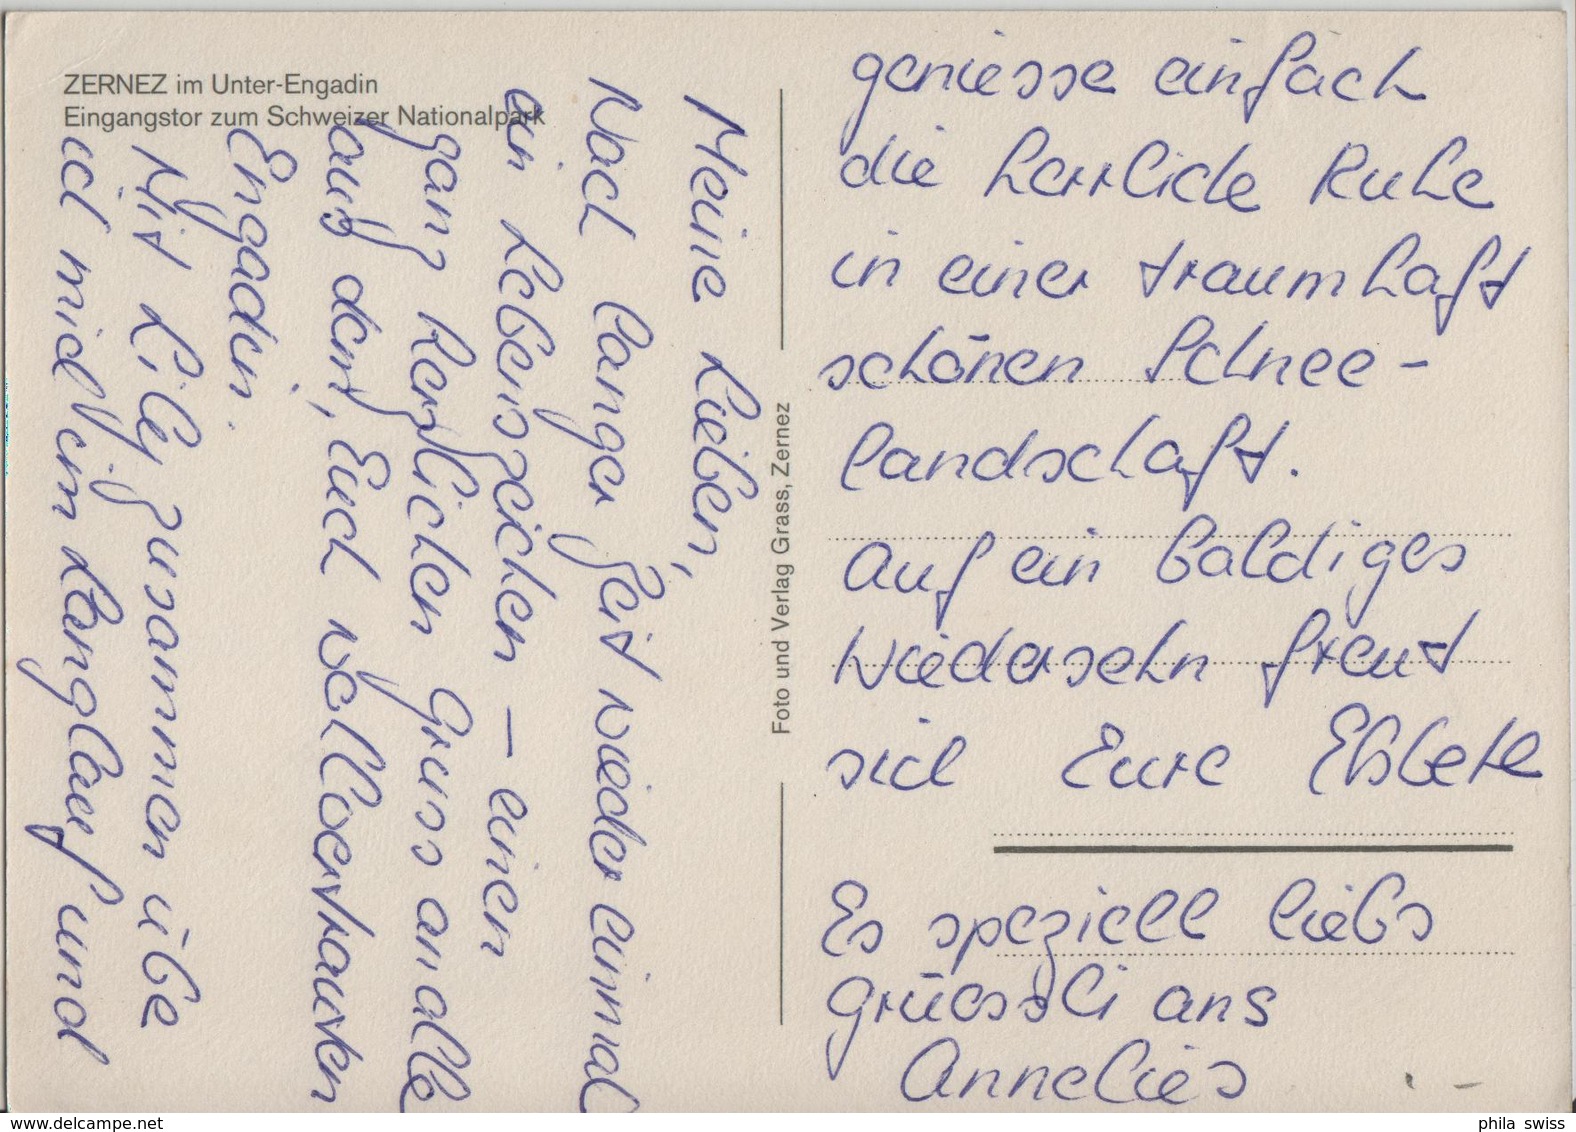 ZERNEZ im Unter-Engadin
Eingangstor zum Schweizer Nationalpark
Meine Lieben,
Nach langer Zeit wieder einmal
ein Lebenszeichen – einen
ganz herzlichen Gruss an alle
aus dem, Euch wohlvertrauten
Engadin.
Mit Lily zusammen übe
ich mich im Langlauf und
Foto und Verlag Grass, Zernez
geniesse einfach
die herrliche Ruhe
in einer traumhaft
schönen Schnee-
landschaft.
Auf ein baldiges
Wiedersehn freut
sich Eure Elsbeth
Es speziell liebs
Grüessli ans
Annelies
phila swiss